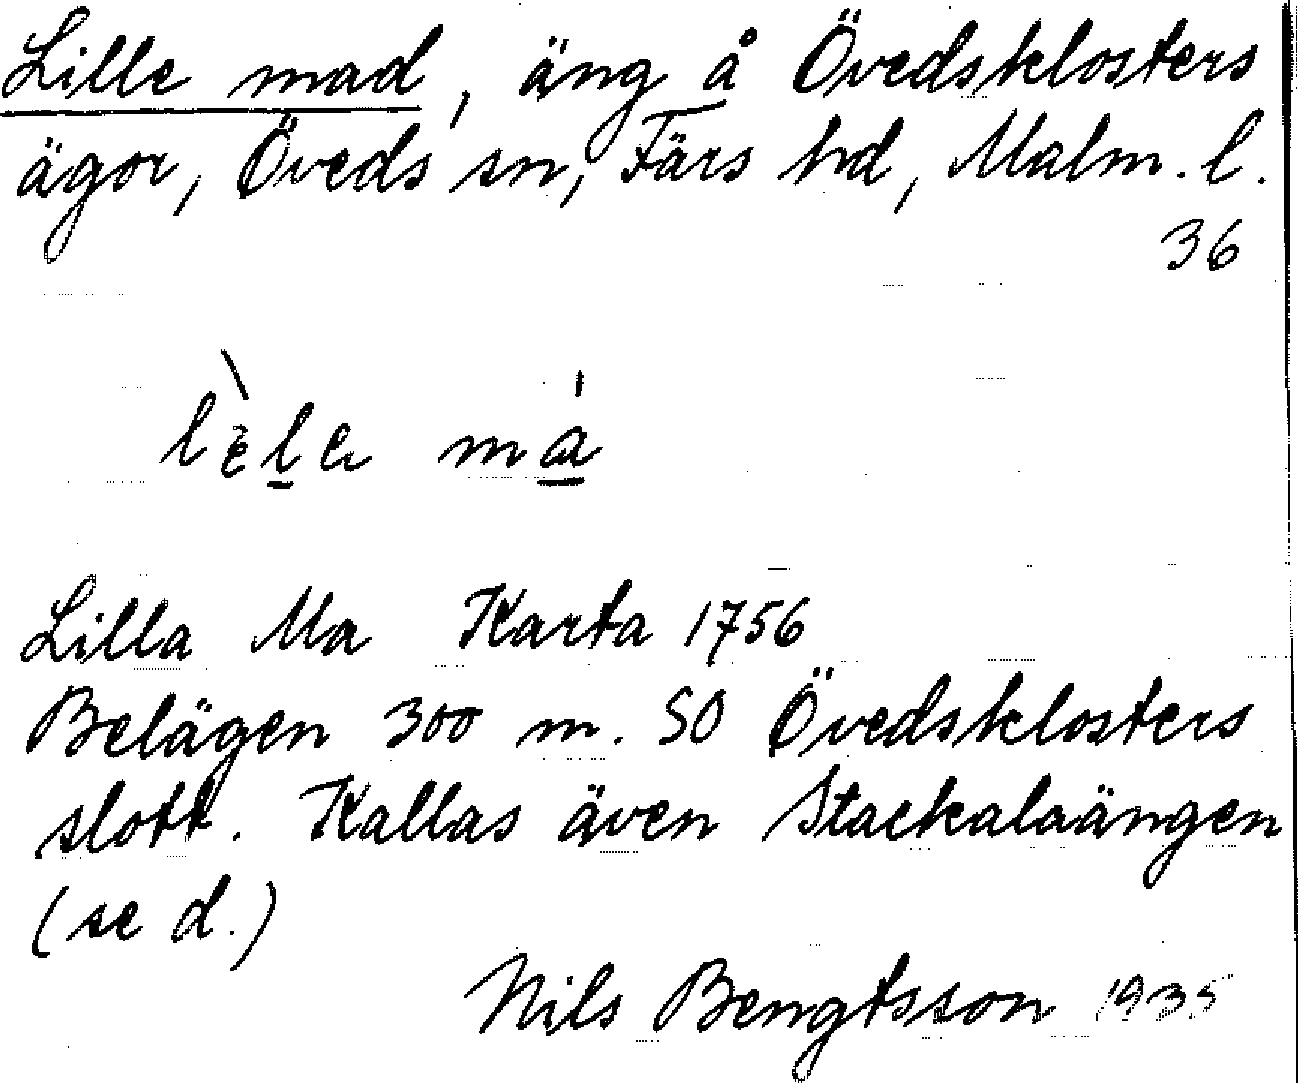 Lille mad, äng å Övedsklosters
ägor, Öveds sn, Färs hd, Malm. l.
36
lèle má
Lilla Ma Karta 1756
Belägen 300 m. SO Övedsklosters
slott. Kallas även Stackalaängen
(se d.)
Nils Bengtsson 1935